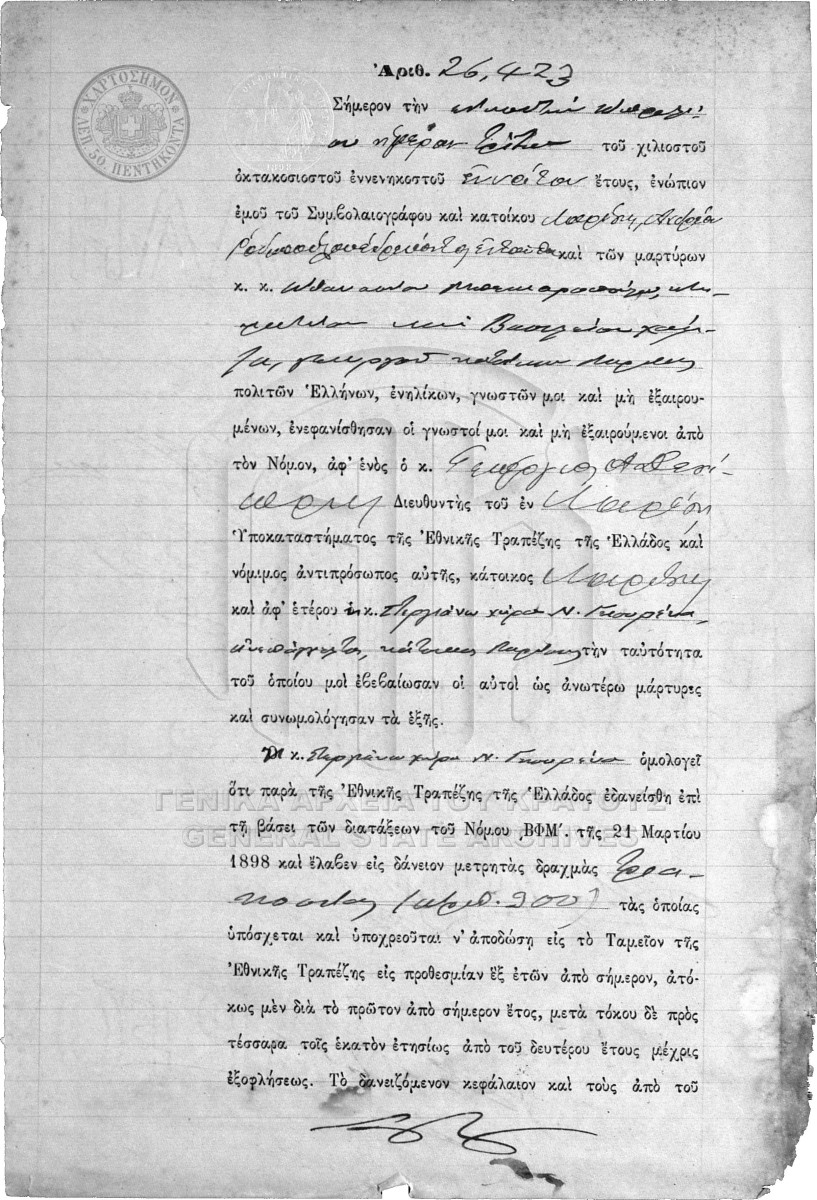 ΧΑΡΤΟΣΗΜΟΝ
ΛΕΠ. 50. ΠΕΝΤΗΚΟΝΤΑ
Ἀριθ. 26,423
Σήμερον τὴν εἰκοστὴν Ἀπριλί-
ου ἡμέραν Τρίτην τοῦ χιλιοστοῦ
ὀκτακοσιοστοῦ ἐννενηκοστοῦ Ἐννάτου ἔτους, ἐνώπιον
ἐμοῦ τοῦ Συμβολαιογράφου καὶ κατοίκου Λαρίσης, Ἀνδρέα
Ῥοδοπούλου ἑδρεύοντος ἐνταῦθα καὶ τῶν μαρτύρων
κ. κ. Ἀθανασίου
καὶ Βασιλείου
γεωργοῦ κατοίκων Λαρίσης
πολιτῶν Ἑλλήνων, ἐνηλίκων, γνωστῶν μοι καὶ μὴ ἐξαιρου-
μένων, ἐνεφανίσθησαν οἱ γνωστοί μοι καὶ μὴ ἐξαιρούμενοι ἀπὸ
τὸν Νόμον, ἀφ' ἑνὸς ὁ κ. Γεώργιος
Διευθυντὴς τοῦ ἐν Λαρίσῃ
Ὑποκαταστήματος τῆς Ἐθνικῆς Τραπέζης τῆς Ἑλλάδος καὶ
νόμιμος ἀντιπρόσωπος αὐτῆς, κάτοικος Λαρίσης
καὶ ἀφ' ἑτέρου ἡ κ. Στεργιάνω χήρα Ν. Γκουρέκα
ἀνεπάγγελτος, κάτοικος Λαρίσης τὴν ταὐτότητα
τοῦ ὁποίου μοὶ ἐβεβαίωσαν οἱ αὐτοὶ ὡς ἀνωτέρω μάρτυρες
καὶ συνωμολόγησαν τὰ ἑξῆς.
Ἡ κ. Στεργιάνω χήρα Ν. Γκουρέκα ὁμολογεῖ
ὅτι παρὰ τῆς Ἐθνικῆς Τραπέζης τῆς Ἑλλάδος ἐδανείσθη ἐπὶ
ΓΕΝΙΚΑ ΑΡΧΕΙΑ ΤΟΥ ΚΡΑΤΟΥΣ
τῇ βάσει τῶν διατάξεων τοῦ Νόμου ͵ΒΦΜ΄. τῆς 21 Μαρτίου
GENERAL STATE ARCHIVES
1898 καὶ ἔλαβεν εἰς δάνειον μετρητὰς δραχμὰς Τρια-
κοσίας (ἀριθ. 300) τὰς ὁποίας
ὑπόσχεται καὶ ὑποχρεοῦται ν' ἀποδώσῃ εἰς τὸ Ταμεῖον τῆς
Ἐθνικῆς Τραπέζης εἰς προθεσμίαν ἓξ ἐτῶν ἀπὸ σήμερον, ἀτό-
κως μὲν διὰ τὸ πρῶτον ἀπὸ σήμερον ἔτος, μετὰ τόκου δὲ πρὸς
τέσσαρα τοῖς ἑκατὸν ἐτησίως ἀπὸ τοῦ δευτέρου ἔτους μέχρις
ἐξοφλήσεως. Τὸ δανειζόμενον κεφάλαιον καὶ τοὺς ἀπὸ τοῦ